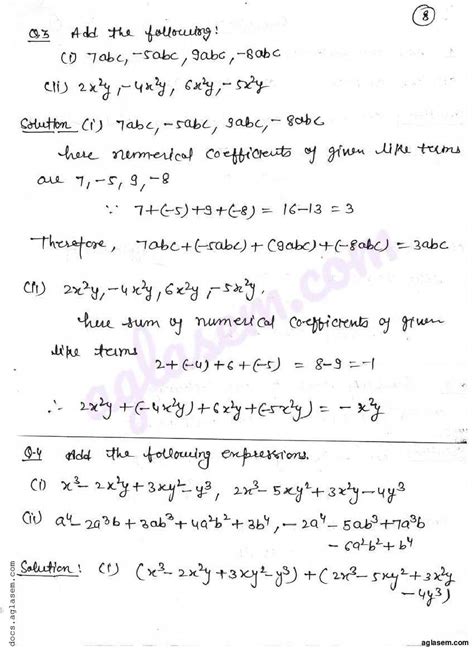 8
Q.3 Add the following:
(i) 7abc, -5abc, 9abc, -8abc
(ii) 2x²y, -4x²y, 6x²y, -5x²y
Solution (i) 7abc, -5abc, 9abc, -8abc
here numerical coefficients of given like terms
are 7, -5, 9, -8
∵ 7+(-5)+9+(-8) = 16-13 = 3
Therefore, 7abc+(-5abc)+(9abc)+(-8abc) = 3abc
(ii) 2x²y, -4x²y, 6x²y, -5x²y.
here sum of numerical coefficients of given
like terms
2+(-4)+6+(-5) = 8-9 = -1
∴ 2x²y+(-4x²y)+6x²y+(-5x²y) = -x²y
Q.4 Add the following expressions.
(i) x³-2x²y+3xy²-y³, 2x³-5xy²+3x²y-4y³
(ii) a⁴-2a³b+3ab³+4a²b²+3b⁴, -2a⁴-5ab³+7a³b
-6a²b²+b⁴
Solution: (i) (x³-2x²y+3xy²-y³)+(2x³-5xy²+3x²y
-4y³)
aglasem.com
docs.aglasem.com
aglasem.com